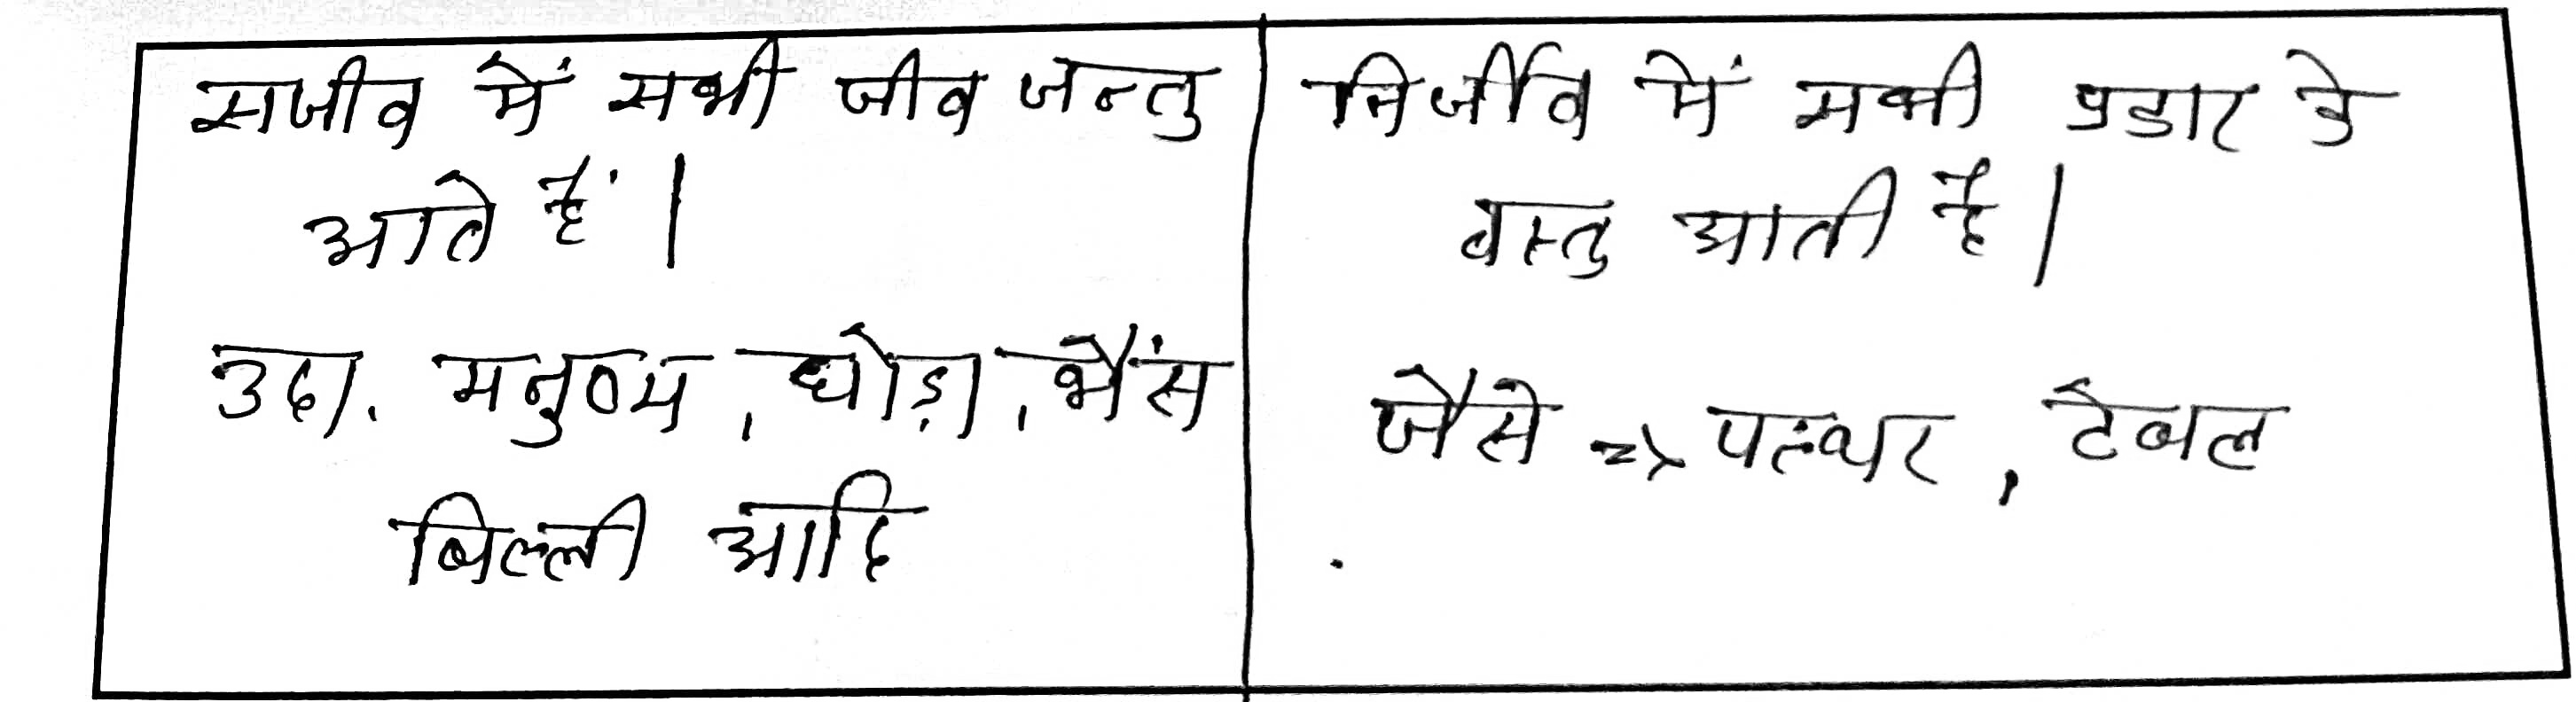 सजीव में सभी जीव जन्तु
आते हैं।
उदा. मनुष्य, घोड़ा, भैंस
बिल्ली आदि
निर्जीव में सभी प्रकार के
वस्तु आती है।
जैसे => पत्थर, टेबल